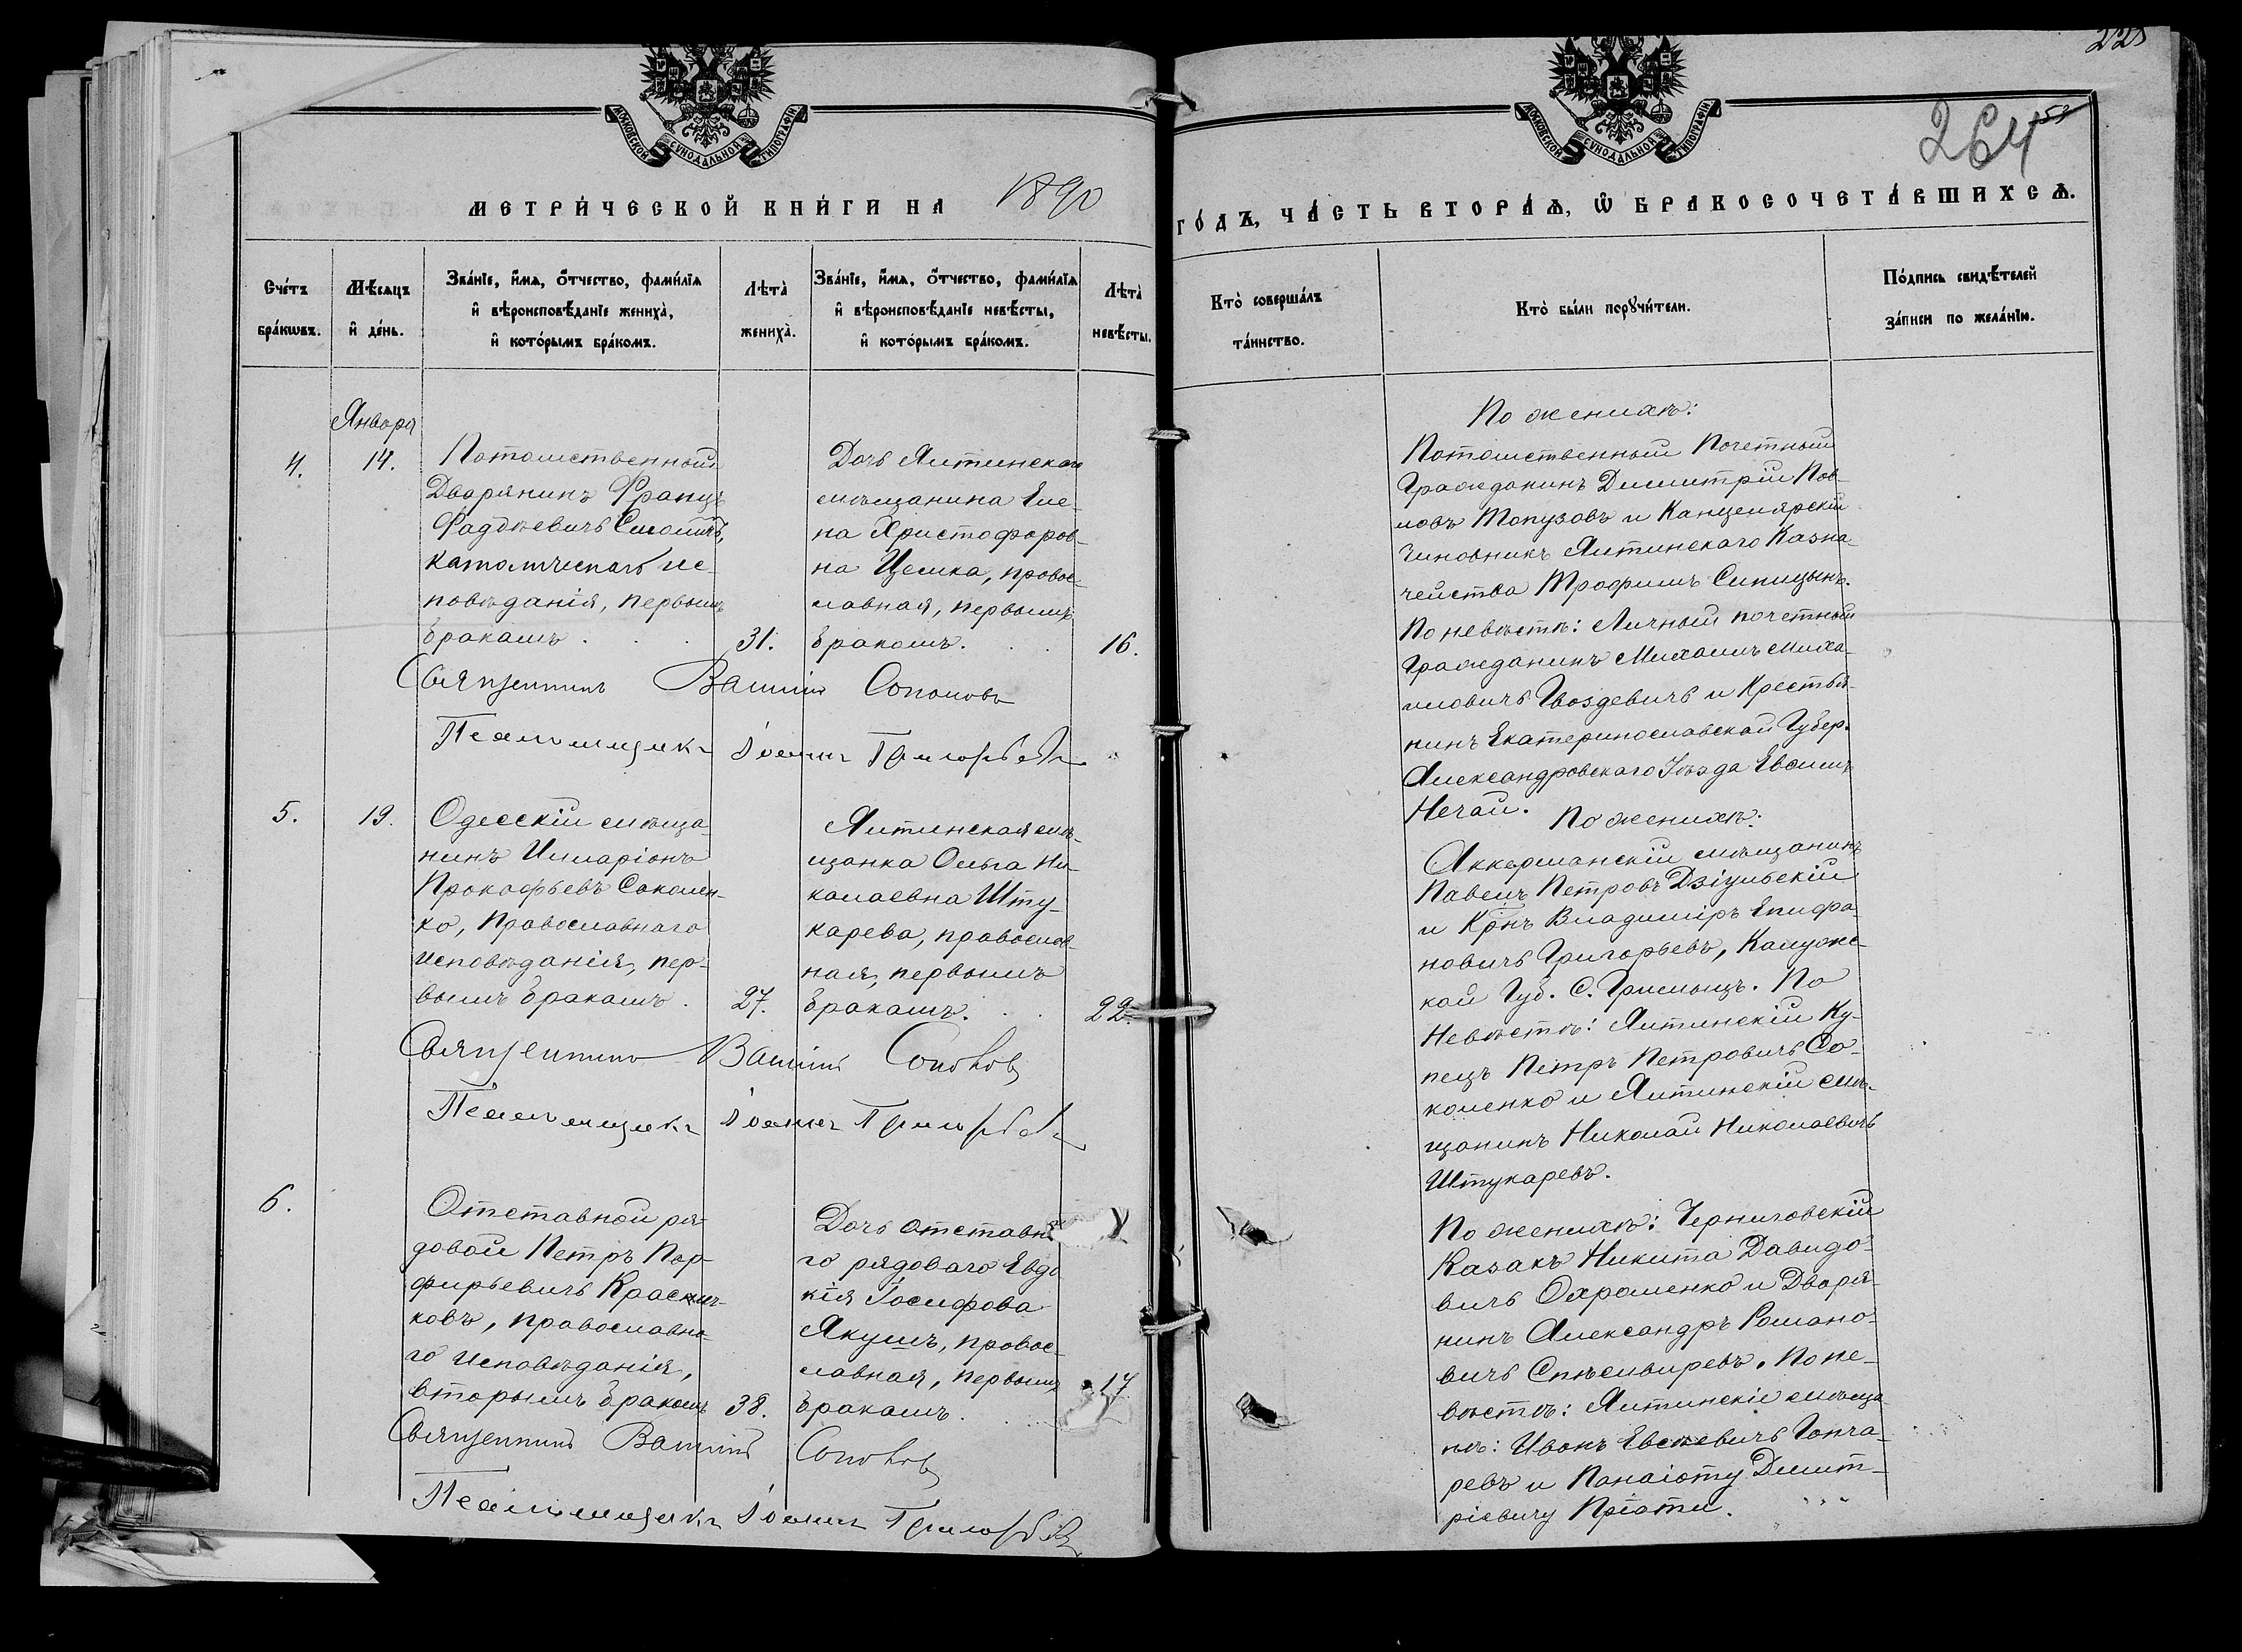 225
264
53
МОСКОВСКОЙ СУНОДАЛЬНОЙ ТИПОГРАФІИ
МОСКОВСКОЙ СУНОДАЛЬНОЙ ТИПОГРАФІИ
МЕТРИ́ЧЕСКОЙ КНИ́ГИ НА 1890
ГО́ДЪ, ЧА́СТЬ ВТОРА́Ѧ, Ѡ҆ БРАКОСОЧЕТА́ВШИХСѦ.
Сче́тъ
бра́кѡвъ.
Мѣ́сѧцъ
и҆ де́нь.
Зва́нїе, и҆́мѧ, ѻ҆́тчество, фами́лїѧ
и҆ вѣроисповѣ́данїе жениха̀,
и҆ кото́рымъ бра́комъ.
Лѣта̀
жениха̀.
Зва́нїе, и҆́мѧ, ѻ҆́тчество, фами́лїѧ
и҆ вѣроисповѣ́данїе невѣ́сты,
и҆ кото́рымъ бра́комъ.
Лѣта̀
невѣ́сты.
Кто̀ соверша́лъ
та́инство.
Кто̀ бы́ли порꙋчи́тели.
По́дпись свидѣ́телей
за́писи по жела́нїю.
Января
4.
14.
Потомственный
Дворянинъ Францъ
Фаддѣевичъ
католическаго ис-
повѣданія, первымъ
бракомъ
31.
Дочь Ялтинскаго
мѣщанина Еле-
на Христофоров-
на Целика, правос-
лавная, первымъ
бракомъ.
16.
Священникъ Василій Сополовъ
Псаломщикъ Іоаннъ Григорьевъ
По женихѣ:
Потомственный Почетный
Гражданинъ Димитрій Пав-
ловъ Топузовъ и Канцелярскій
чиновникъ Ялтинскаго Казна-
чейства Трофимъ Синицынъ.
По невѣстѣ: Личный почетный
Гражданинъ Михаилъ Миха-
иловичъ Гвоздевичъ и Крестья-
нинъ Екатеринославской Губер.
Александровскаго Уѣзда Евсимъ
Нечай.
5.
19.
Одесскій мѣща
нинъ Иларіонъ
Прокофьевъ Соколен-
ко, Православнаго
исповѣданія, пер-
вымъ бракомъ.
27.
Ялтинская мѣ-
щанка Ольга Ни-
колаевна Шту-
карева, православ-
ная, первымъ
бракомъ.
22.
Священникъ Василій Соколовъ
Псаломщикъ Іоаннъ Григорьевъ
По женихѣ:
Аккерманскій мѣщанинъ
Павелъ Петровъ Дзіульскій
и Крнъ Владиміръ Епифа-
новичъ Григорьевъ, Калужс-
кой Губ. С. По
Невѣстѣ: Ялтинскій Ку-
пецъ Петръ Петровичъ Со-
коленко и Ялтинскій мѣ-
щанинъ Николай Николаевичъ
Штукаревъ.
6.
Отставной ря-
довой Петръ Пор-
фирьевичъ
ковъ, православна-
го исповѣданія,
вторымъ бракомъ
38.
Дочь отставна
го рядоваго Евдо
кія Іосифова
Якушъ, правос-
лавная, первымъ
бракомъ.
17
Священникъ Василій Соколовъ
Псаломщикъ Іоаннъ Григорьевъ
По женихѣ: Черниговскій
Казакъ Никита Давидо-
вичъ Охроменко и Дворя-
нинъ Александръ Романо-
вичъ Спѣсивцевъ. По не-
вѣстѣ: Ялтинскіе мѣща
не: Иванъ Евсѣевичъ Гонча-
ревъ и Панаіоту Димит-
ріевичу Пріоти.